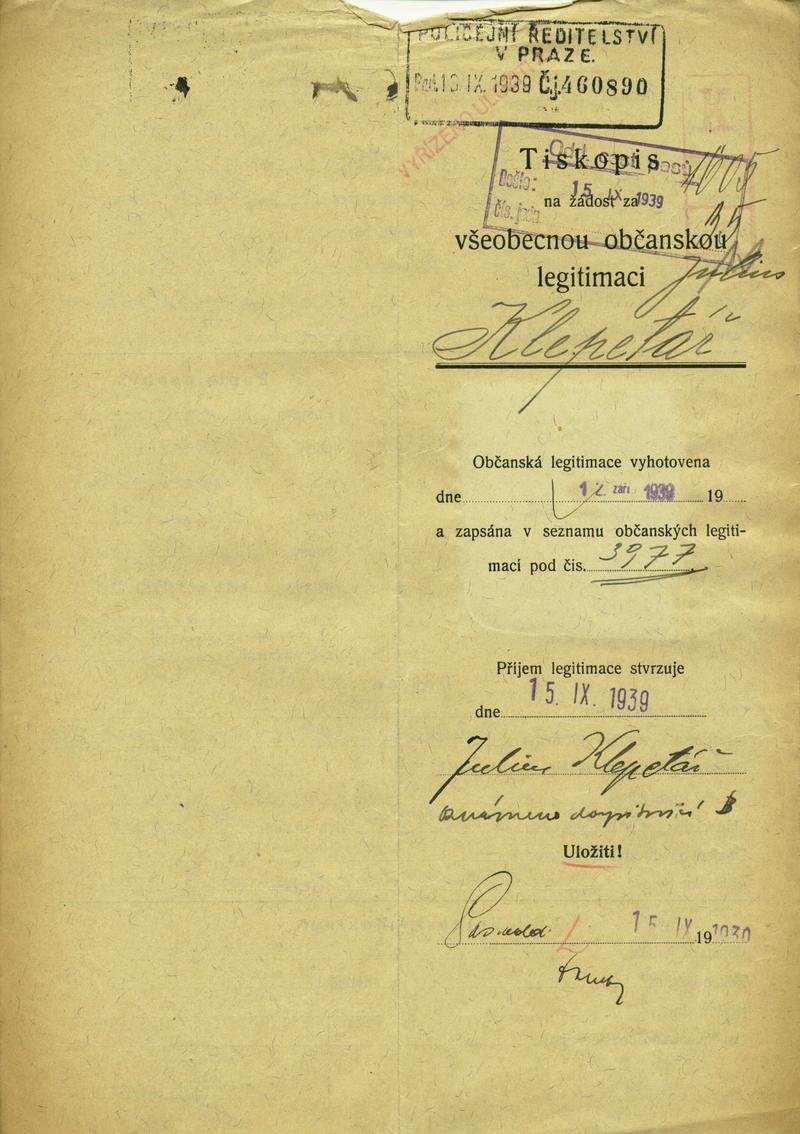 POLICEJNÍ ŘEDITELSTVÍ
V PRAZE.
13. IX. 1939 Č.j. 460890
Tiskopis
Došlo: 15. IX 1939
na žádost za
všeobecnou občanskou
legitimaci Julius
Klepetář
Občanská legitimace vyhotovena
dne 12. září 1939 19
a zapsána v seznamu občanských legiti-
mací pod čís. 3977
Příjem legitimace stvrzuje
dne 15. IX. 1939
Julius Klepetář
Uložiti!
15 IX 19 1939